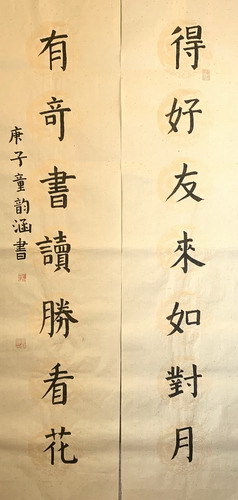 得好友來如對月
有奇書讀勝看花
庚子童韵涵書